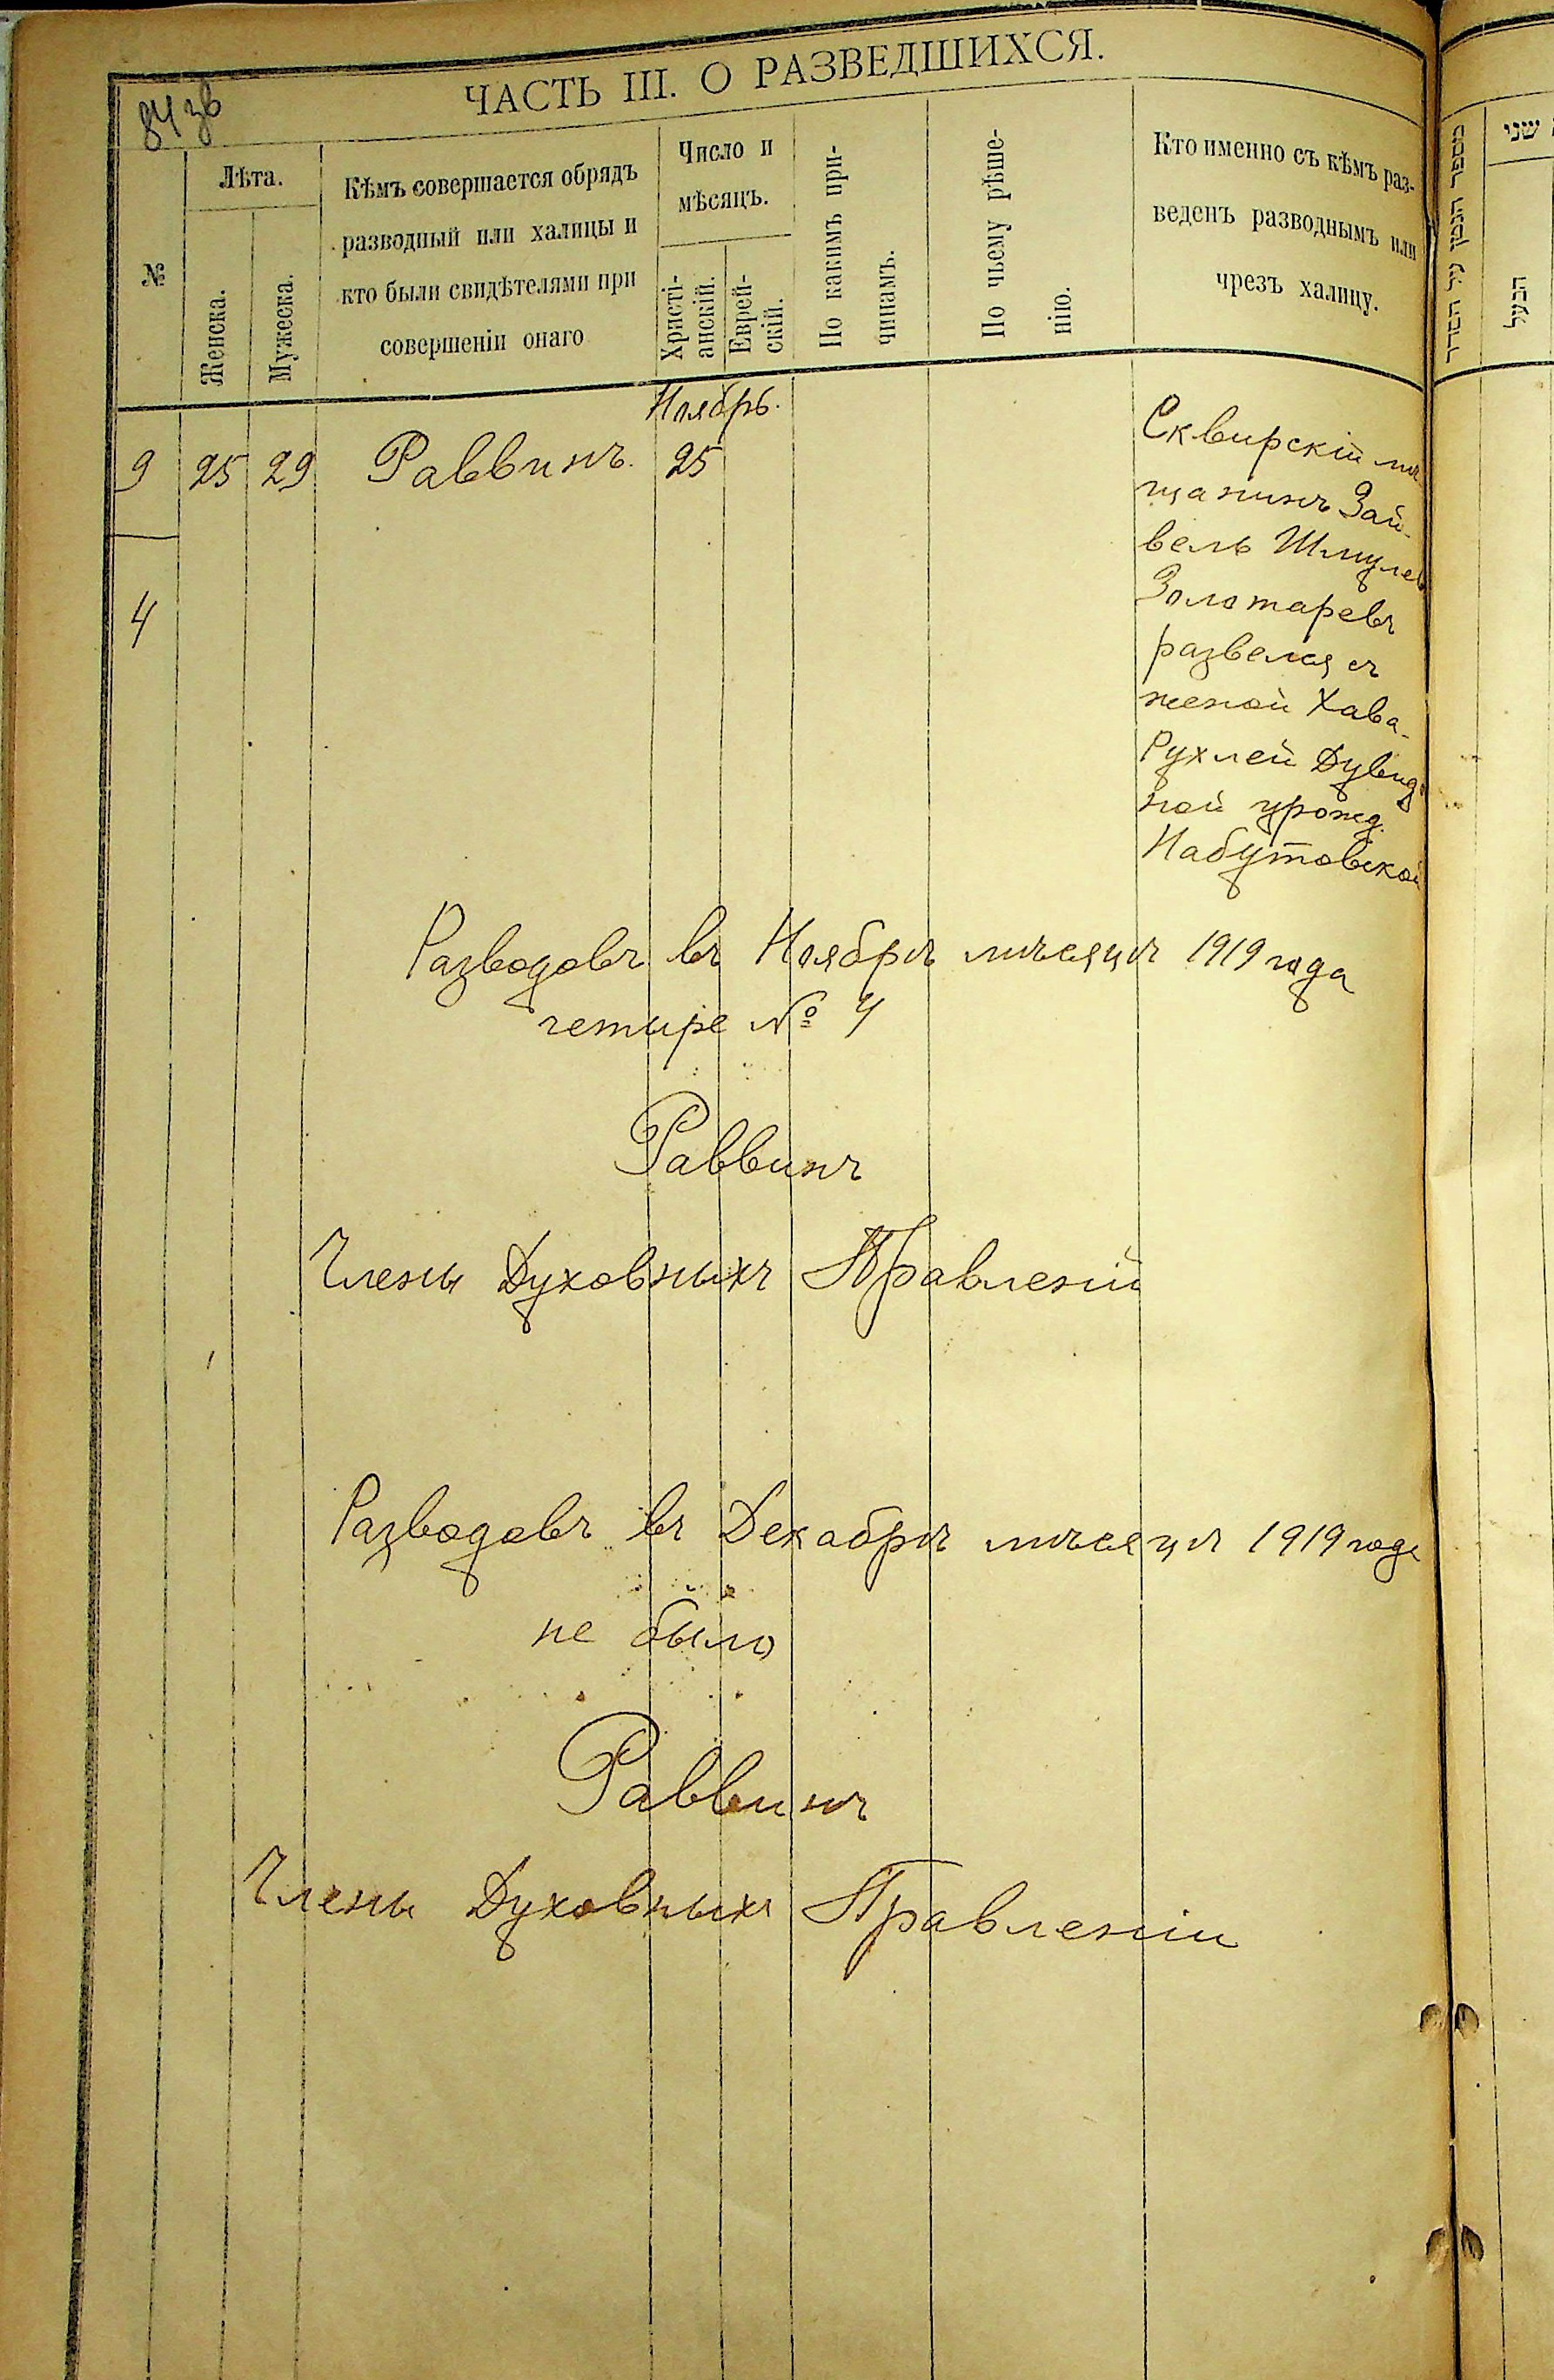 84 зв
ЧАСТЬ III. О РАЗВЕДШИХСЯ.
№
Лѣта.
Женска.
Мужеска.
Кѣмъ совершается обрядъ
разводный или халицы и
кто были свидѣтелями при
совершеніи онаго
Число и
мѣсяцъ.
Христі-
анскій.
Еврей-
скій.
По какимъ при-
чинамъ.
По чьему рѣше-
нію.
Кто именно съ кѣмъ раз-
веденъ разводнымъ или
чрезъ халицу.
שני
הבעל
Ноябрь.
9 25 29 Раввинъ. 25
4
Сквирскій мѣ
щанинъ Зай-
вель Шмулев
Золотаревъ
развелся съ
женой Хава-
Рухлей Дувид
ной урожд.
Набутовской
Разводовъ въ Ноябрѣ мѣсяцѣ 1919 года
четыре № 4
Раввинъ
Члены Духовныхъ Правленій
Разводовъ въ Декабрѣ мѣсяцѣ 1919 года
не было
Раввинъ
Члены Духовныхъ Правленіи